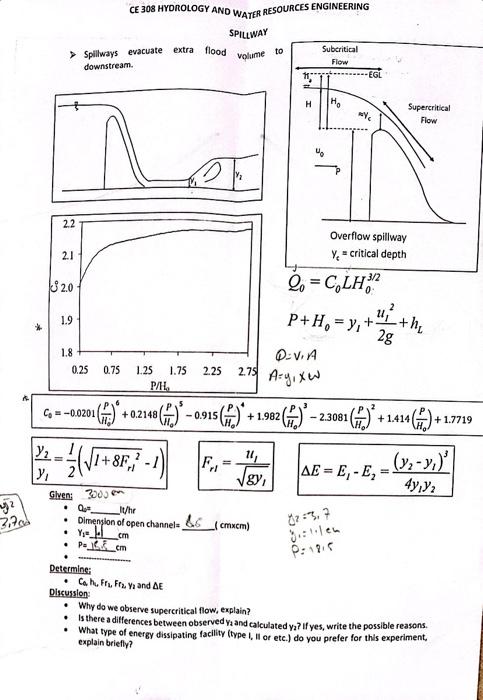 CE 308 HYDROLOGY AND WATER RESOURCES ENGINEERING
SPILLWAY
➤ Spillways evacuate extra flood volume to
downstream.
Y₁
Y₂
Subcritical
Flow
EGL
H
H₀
≈Y꜀
Supercritical
Flow
u₀
P
Overflow spillway
Y꜀ = critical depth
2.2
2.1
C₀ 2.0
1.9
1.8
0.25 0.75 1.25 1.75 2.25 2.75
P/H₀
Q₀ = C₀LH₀^3/2
P + H₀ = y₁ + u₁²/2g + h_L
Q=V.A
A=y₁xw
C₀ = −0.0201(P/H₀)⁶ + 0.2148(P/H₀)⁵ − 0.915(P/H₀)⁴ + 1.982(P/H₀)³ − 2.3081(P/H₀)² + 1.414(P/H₀) + 1.7719
y₂/y₁ = 1/2(√1+8F_r1² − 1)
F_r1 = u₁/√gy₁
ΔE = E₁ − E₂ = (y₂ − y₁)³/4y₁y₂
Given: 3000
• Q₀=____lt/hr
• Dimension of open channel= ____ ( cmxcm)
• Y₁=____cm
• P=____cm
• ------------------
y₂=3,7
P=18.5
Determine:
• C₀, h_L, Fr₁, Fr₂, y₂ and ΔE
Discussion:
• Why do we observe supercritical flow, explain?
• Is there a differences between observed y₂ and calculated y₂? If yes, write the possible reasons.
• What type of energy dissipating facility (type I, II or etc.) do you prefer for this experiment,
explain briefly?